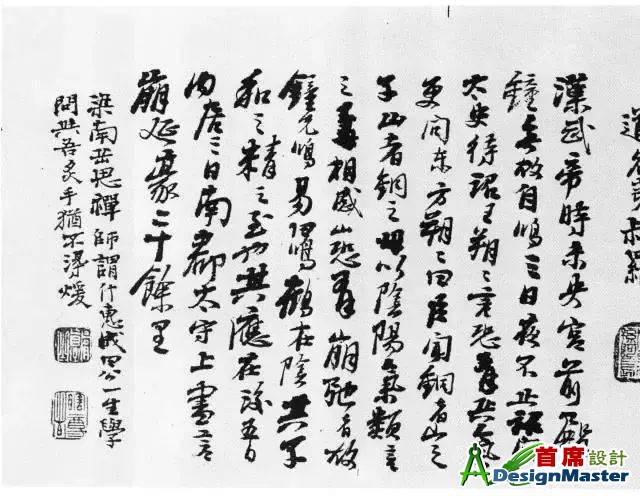 漢武帝時未央宮前殿
鐘無故自鳴三日夜不止詔
太史待詔王朔〻言恐有兵氣
更問東方朔〻曰臣聞銅者山之
子山者銅之母以陰陽氣類言
之相感山恐有崩弛者故
鐘先鳴易曰鳴鶴在陰其子
和之精之至也其應在後五日
內居三日南郡太守上書言
崩延袤二十餘里
梁南岳思禪師謂什惠成曰公一生學
問與吾炙手猶不得煖
首席設計
DesignMaster